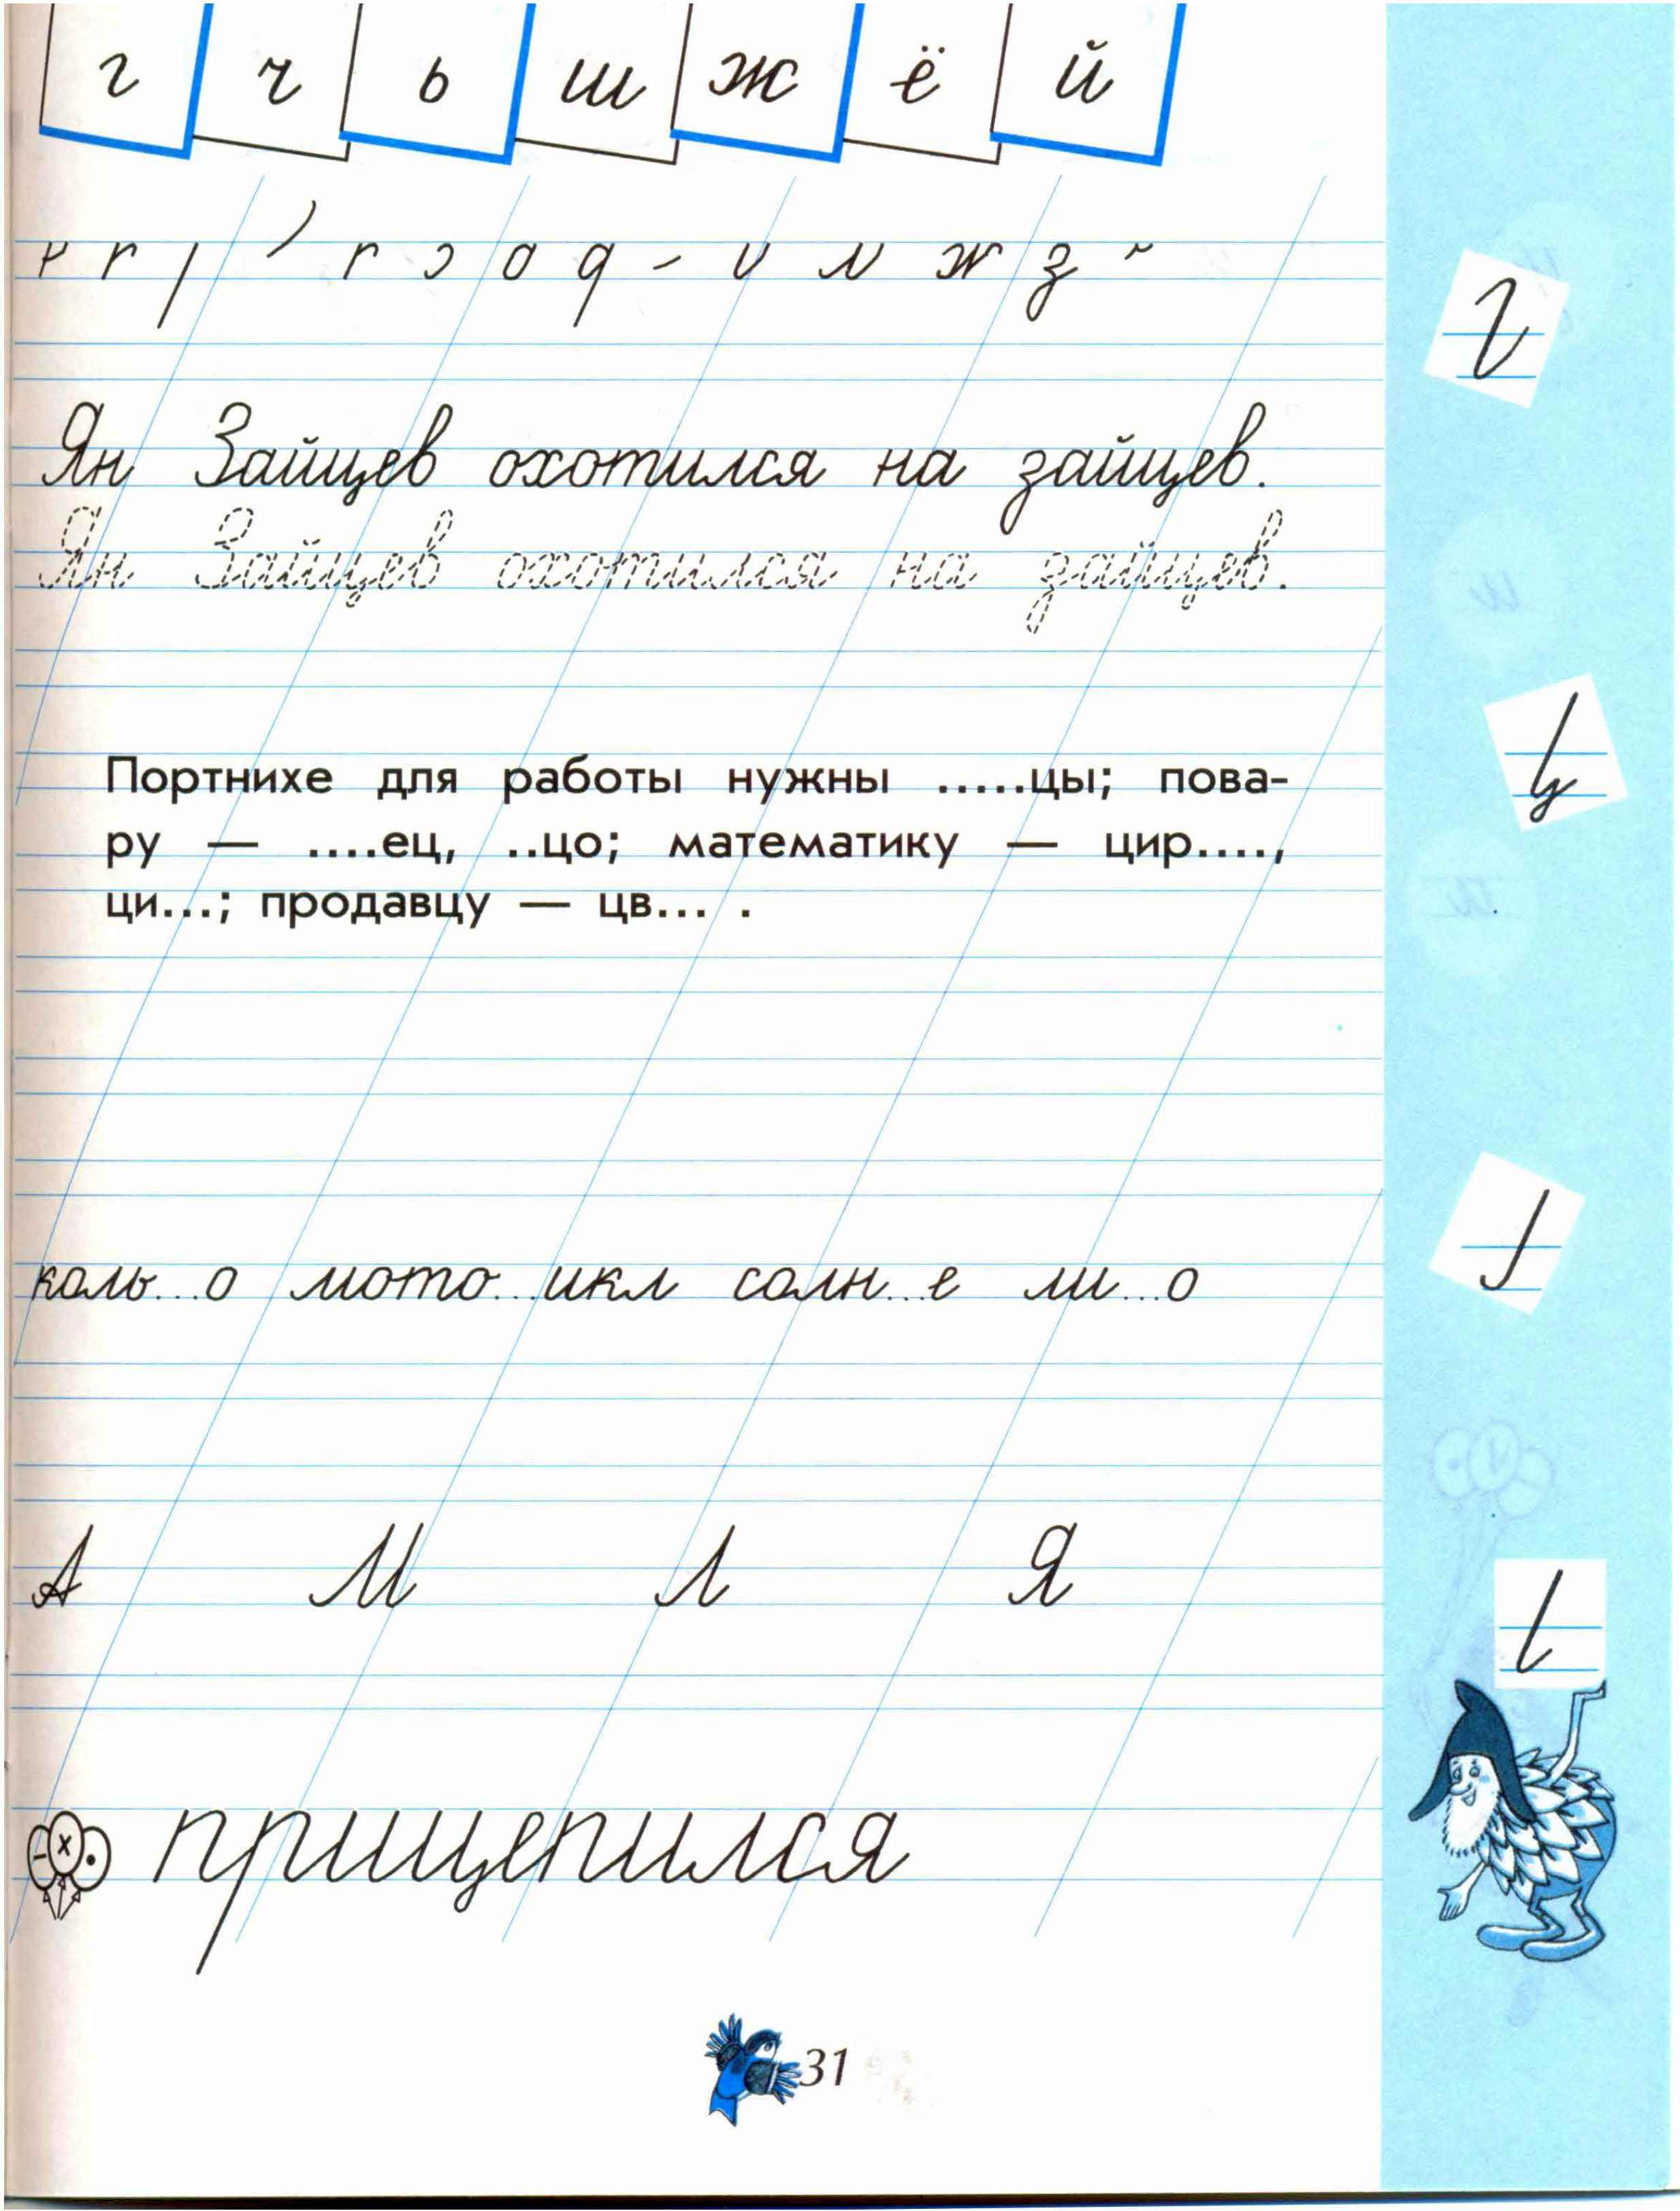 г ч ь ш ж ё й
Ян Зайцев охотился на зайцев.
Ян Зайцев охотился на зайцев.
Портнихе для работы нужны .....цы; пова-
ру — ....ец, ..цо; математику — цир....,
ци...; продавцу — цв... .
коль...о мото...икл солн...е ли...о
А М Л Я
прицепился
31